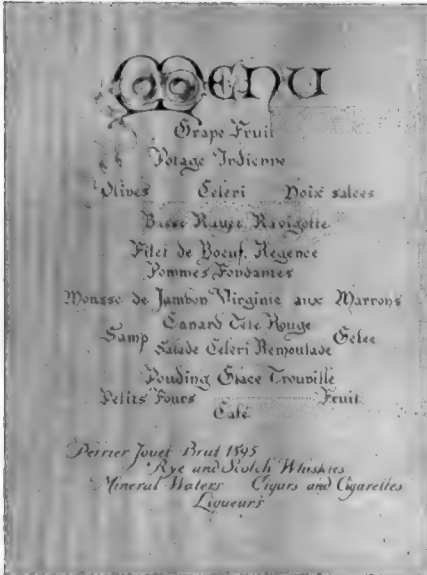 Menu
Grape Fruit
Potage Indienne
Olives Celeri Noix salees
Basse Rouge Ravigotte
Filet de Boeuf, Regence
Pommes Fondantes
Mousse de Jambon Virginie aux Marrons
Canard Tete Rouge
Samp Gelee
Salade Celeri Remoulade
Pouding Glace Trouville
Petits Fours Fruit
Café
Perrier Jouet Brut 1895
Rye and Scotch Whiskies
Mineral Waters Cigars and Cigarettes
Liqueurs